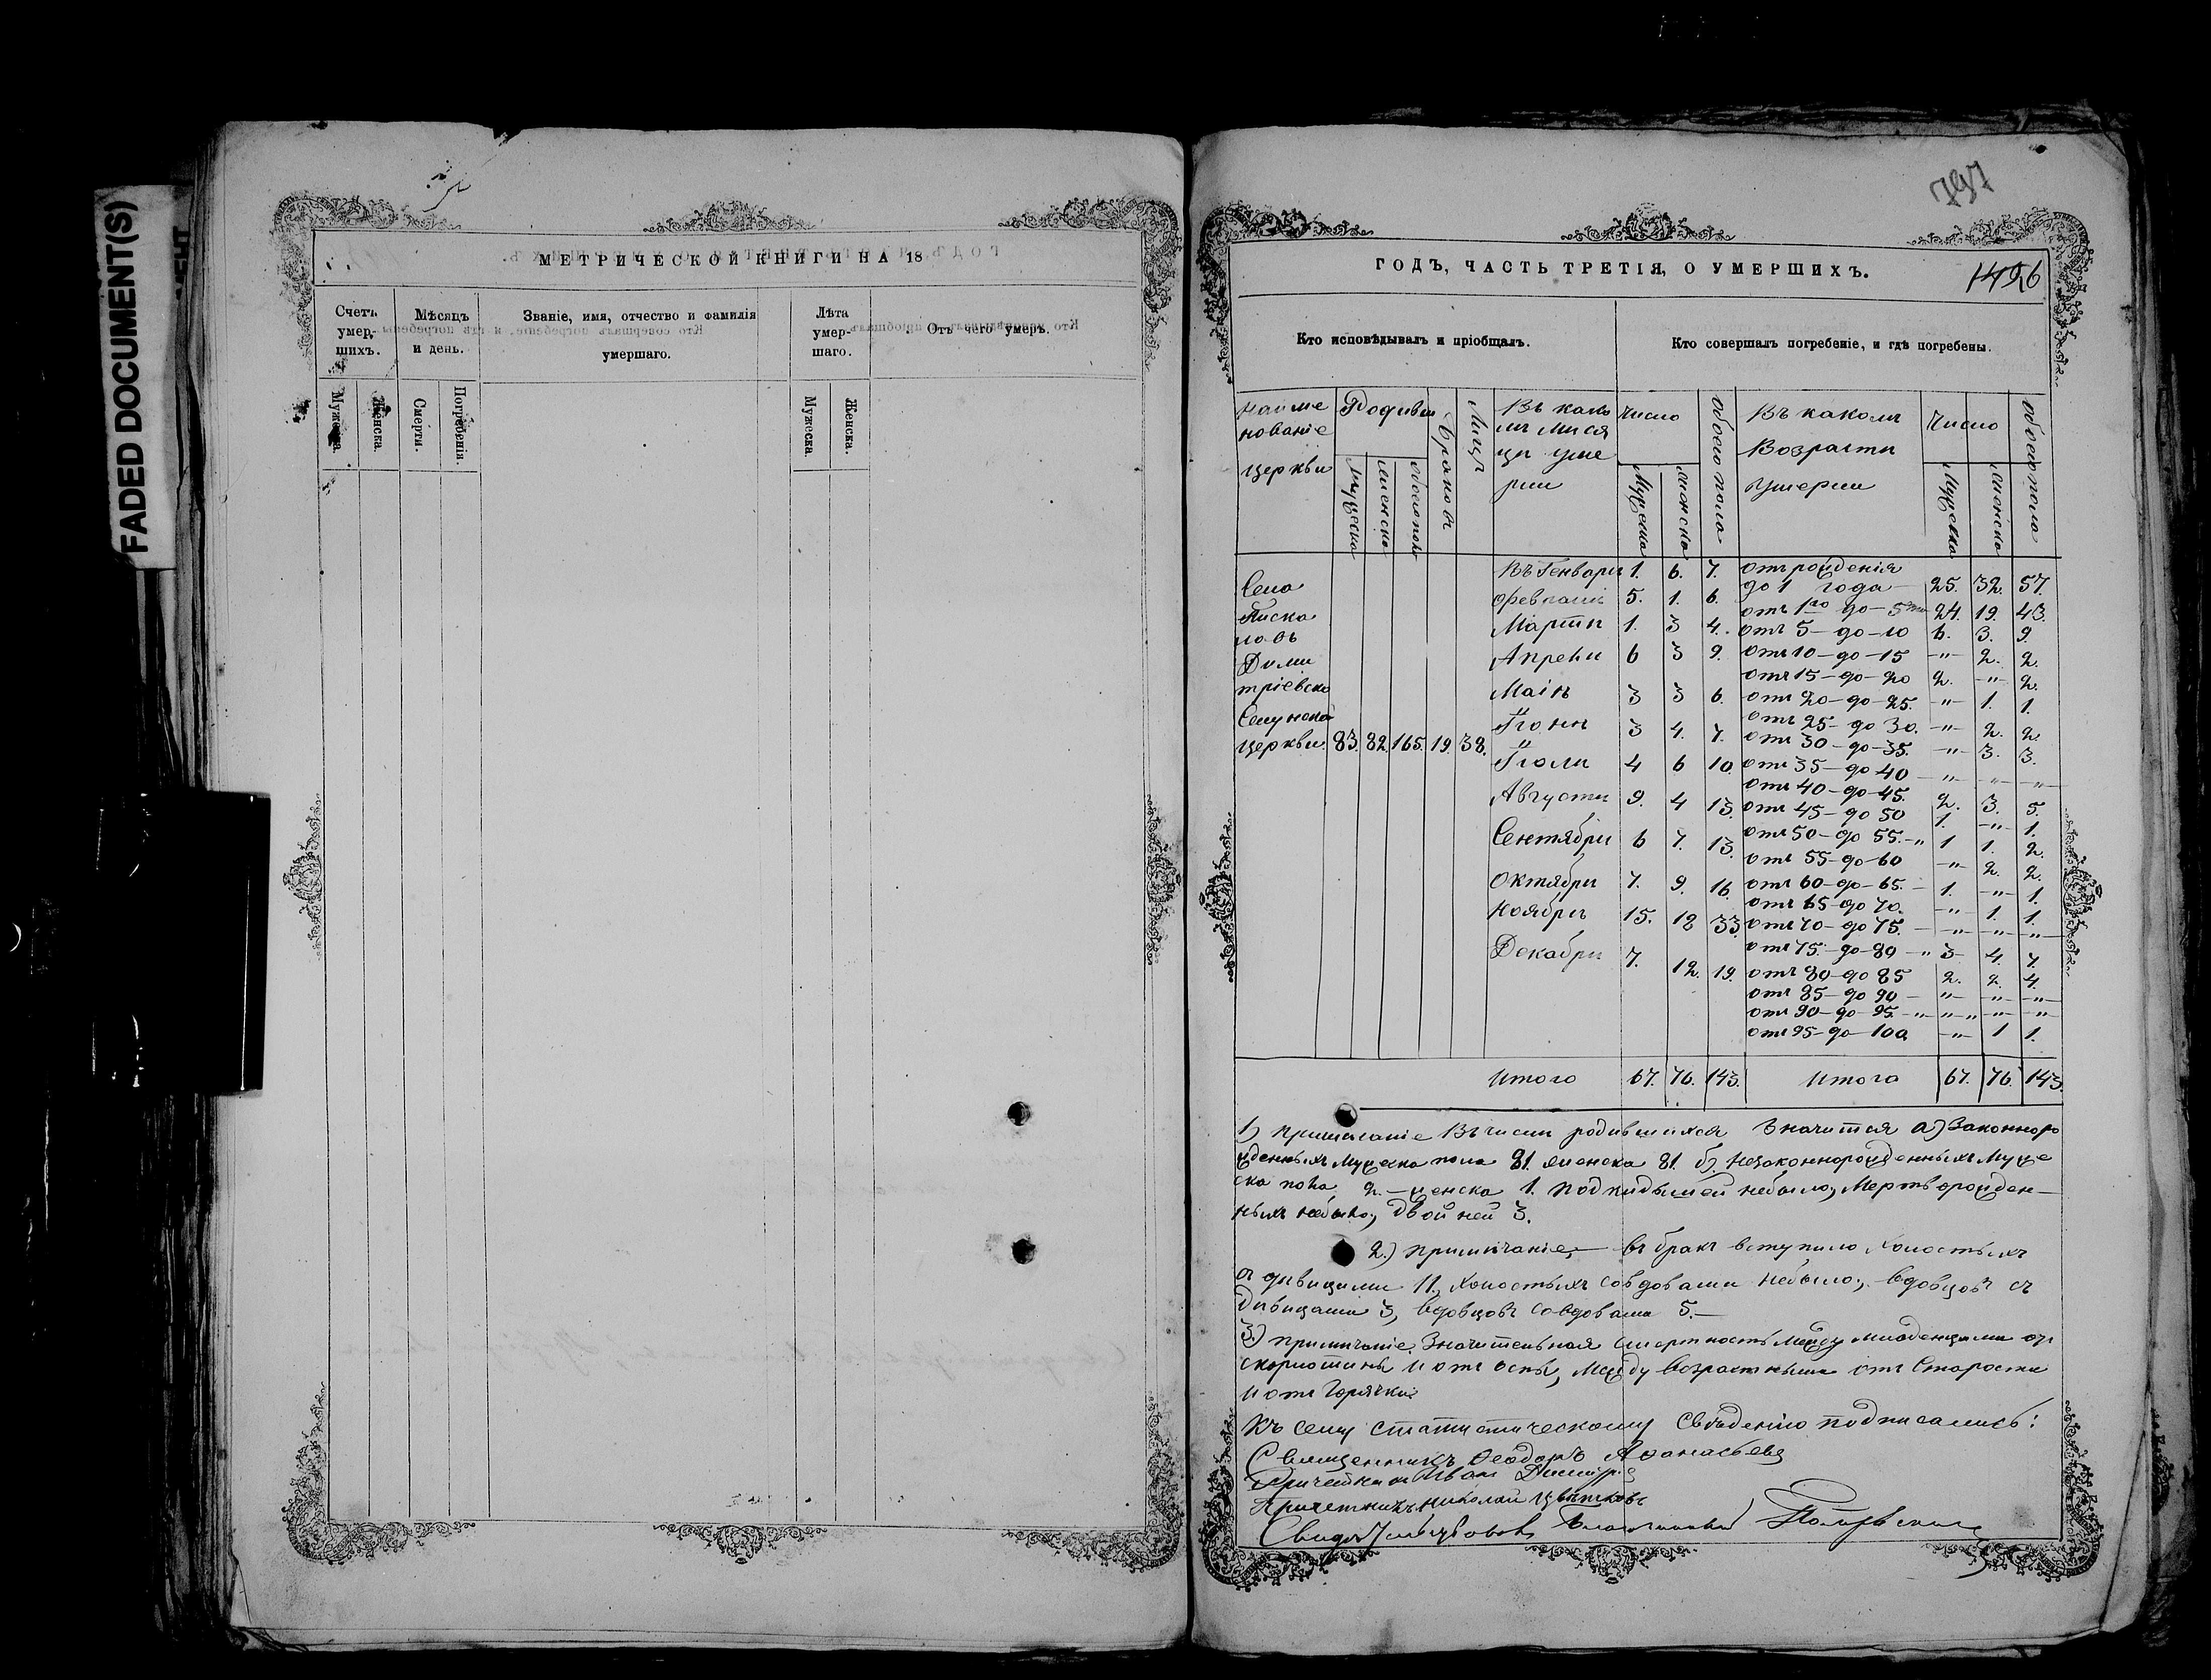 FADED DOCUMENT(S)
МЕТРИЧЕСКОЙ КНИГИ НА 18
Счетъ умер- шихъ.
Мѣсяцъ и день.
Званіе, имя, отчество и фамилія умершаго.
Лѣта умер- шаго.
Отъ чего умеръ.
Мужеска.
Женска.
Смерти.
Погребенія.
Мужеска
Женска.
797
ГОДЪ, ЧАСТЬ ТРЕТІЯ, О УМЕРШИХЪ.
Кто исповѣдывалъ и пріобщалъ.
Кто совершалъ погребеніе, и гдѣ погребены.
Наиме нованіе церкви
Родивш
Мужеска
женска
обоего пола
Браковъ
Лицъ
Въ како мъ мѣся цѣ уме рли
Число
Мужеска
женска
обоего пола
Въ какомъ Возрасти Умерли
Число
Мужеска
женска
обоего пола
Села
Писка
ловъ
Дими
тріевско
Селунской
церкви. 83. 82. 165. 19. 38.
Въ Генвари 1. 6. 7.
Феврали 5. 1. 6.
Марти 1. 3 4.
Апрели 6 3 9.
Маіи 3 3 6.
Іюни 3 4. 7.
Іюли 4 6 10.
Августи 9. 4 13.
Сентябри 6 7. 13.
Октябри 7. 9. 16.
Ноябри 15. 18 33.
Декабри 7. 12. 19.
отъ рожденія
до 1 года 25. 32. 57.
отъ 1го до 5ти 24. 19. 43.
отъ 5 до 10 6. 3. 9.
отъ 10 до 15 " 2. 2.
отъ 15 до 20 2. " 2.
отъ 20 до 25. " 1. 1.
отъ 25 до 30. " 2. 2.
отъ 30 до 35. " 3. 3.
отъ 35 до 40 " " "
отъ 40 до 45. 2. 3. 5.
отъ 45 до 50 1. " 1.
отъ 50 до 55. " 1 1. 2.
отъ 55 до 60 " 2. 2.
отъ 60 до 65. 1. " 1.
отъ 65 до 70. " 1. 1.
отъ 70 до 75. " " "
отъ 75. до 80 " 3 4. 7.
отъ 80 до 85 2. 2. 4.
отъ 85 до 90 " " "
отъ 90 до 95. " " " " "
отъ 95 до 100. " 1 1.
Итого 67. 76. 143. Итого 67. 76. 143.
1) примѣчаніе Въ числѣ родившихся Значится а) Законноро
жденныхъ Мужеска пола 81. женска 81. б) Незаконнорожденныхъ Муже
ска пола 2. — женска 1. подкидышей небыло, Мертворожден—
ныхъ небыло, Двойней 3.
2.) примѣчаніе, — въ бракъ вступило холостыхъ
съ дѣвицами 11., холостыхъ совдовами небыло, вдовцовъ съ
дѣвицами 3, вдовцовъ совдовами 5.—
3.) примѣчаніе. Значительная смертность между младенцами отъ
скорлотины и отъ оспы, между возрастными отъ Старости
и отъ Горячки.
Къ сему статистическому Свѣденію подписались:
Священникъ Ѳеодоръ Аѳанасьевъ
Иванъ
Причетникъ Николай Цвѣтковъ